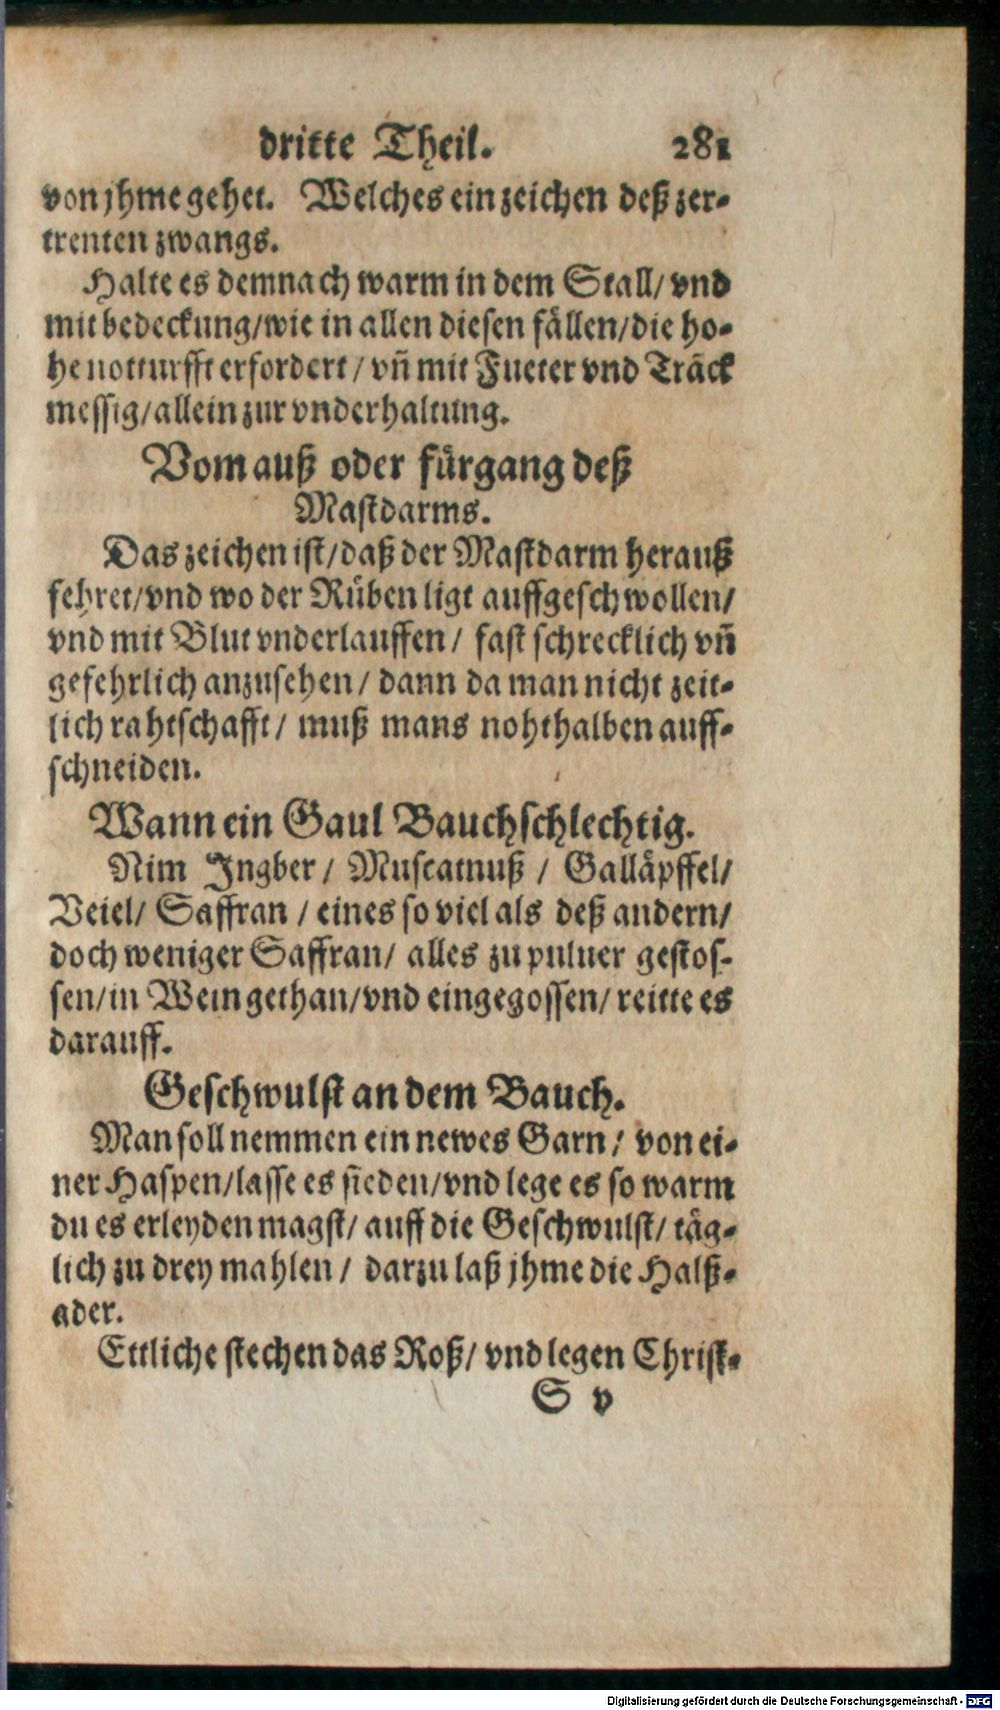 dritte Theil. 281
von jhme gehet. Welches ein zeichen deß zer-
trenten zwangs.
Halte es demnach warm in dem Stall/ vnd
mit bedeckung/wie in allen diesen fällen/die ho-
he notturfft erfordert / vñ mit Fueter vnd Trãck
messig/allein zur vnderhaltung.
Vom auß oder fürgang deß
Mastdarms.
Das zeichen ist/daß der Mastdarm herauß
fehret/vnd wo der Rüben ligt auffgeschwollen/
vnd mit Blut vnderlauffen / fast schrecklich vñ
gefehrlich anzusehen / dann da man nicht zeit-
lich rahtschafft / muß mans nohthalben auff-
schneiden.
Wann ein Gaul Bauchschlechtig.
Nim Ingber / Muscatnuß / Galläpffel/
Veiel/ Saffran / eines so viel als deß andern/
doch weniger Saffran/ alles zu puluer gestos-
sen/in Wein gethan/vnd eingegossen/ reitte es
darauff.
Geschwulst an dem Bauch.
Man soll nemmen ein newes Garn / von ei-
ner Haspen/lasse es sieden/vnd lege es so warm
du es erleyden magst/ auff die Geschwulst/ täg-
lich zu drey mahlen / darzu laß jhme die Halß-
ader.
Ettliche stechen das Roß/ vnd legen Christ-
S v
Digitalisierung gefördert durch die Deutsche Forschungsgemeinschaft - DFG